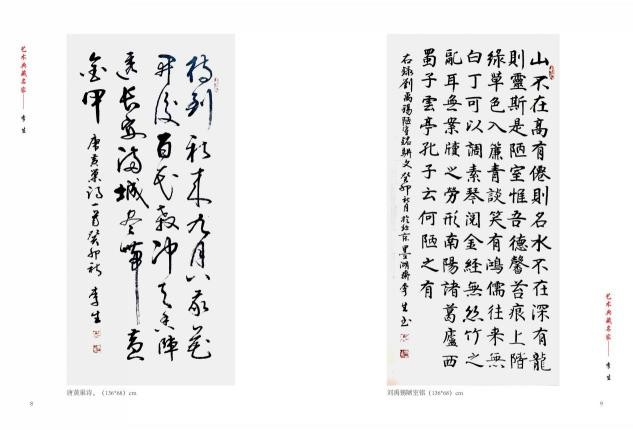 艺术典藏名家——李生
待到秋来九月八我花
开後百花殺冲天香陣
透长安满城尽带黄
金甲
唐黄巢诗一首癸卯秋 李生
唐黄巢诗。（136*68）cm
8
山不在高有僊則名水不在深有龍
則靈斯是陋室惟吾德馨苔痕上階
綠草色入簾青談笑有鴻儒往來無
白丁可以調素琴閱金經無絲竹之
亂耳無案牘之勞形南陽諸葛廬西
蜀子雲亭孔子云何陋之有
右錄劉禹錫陋室銘駢文癸卯秋月於北京墨湖齋李生书
刘禹锡陋室铭（136*68）cm
艺术典藏名家——李生
9